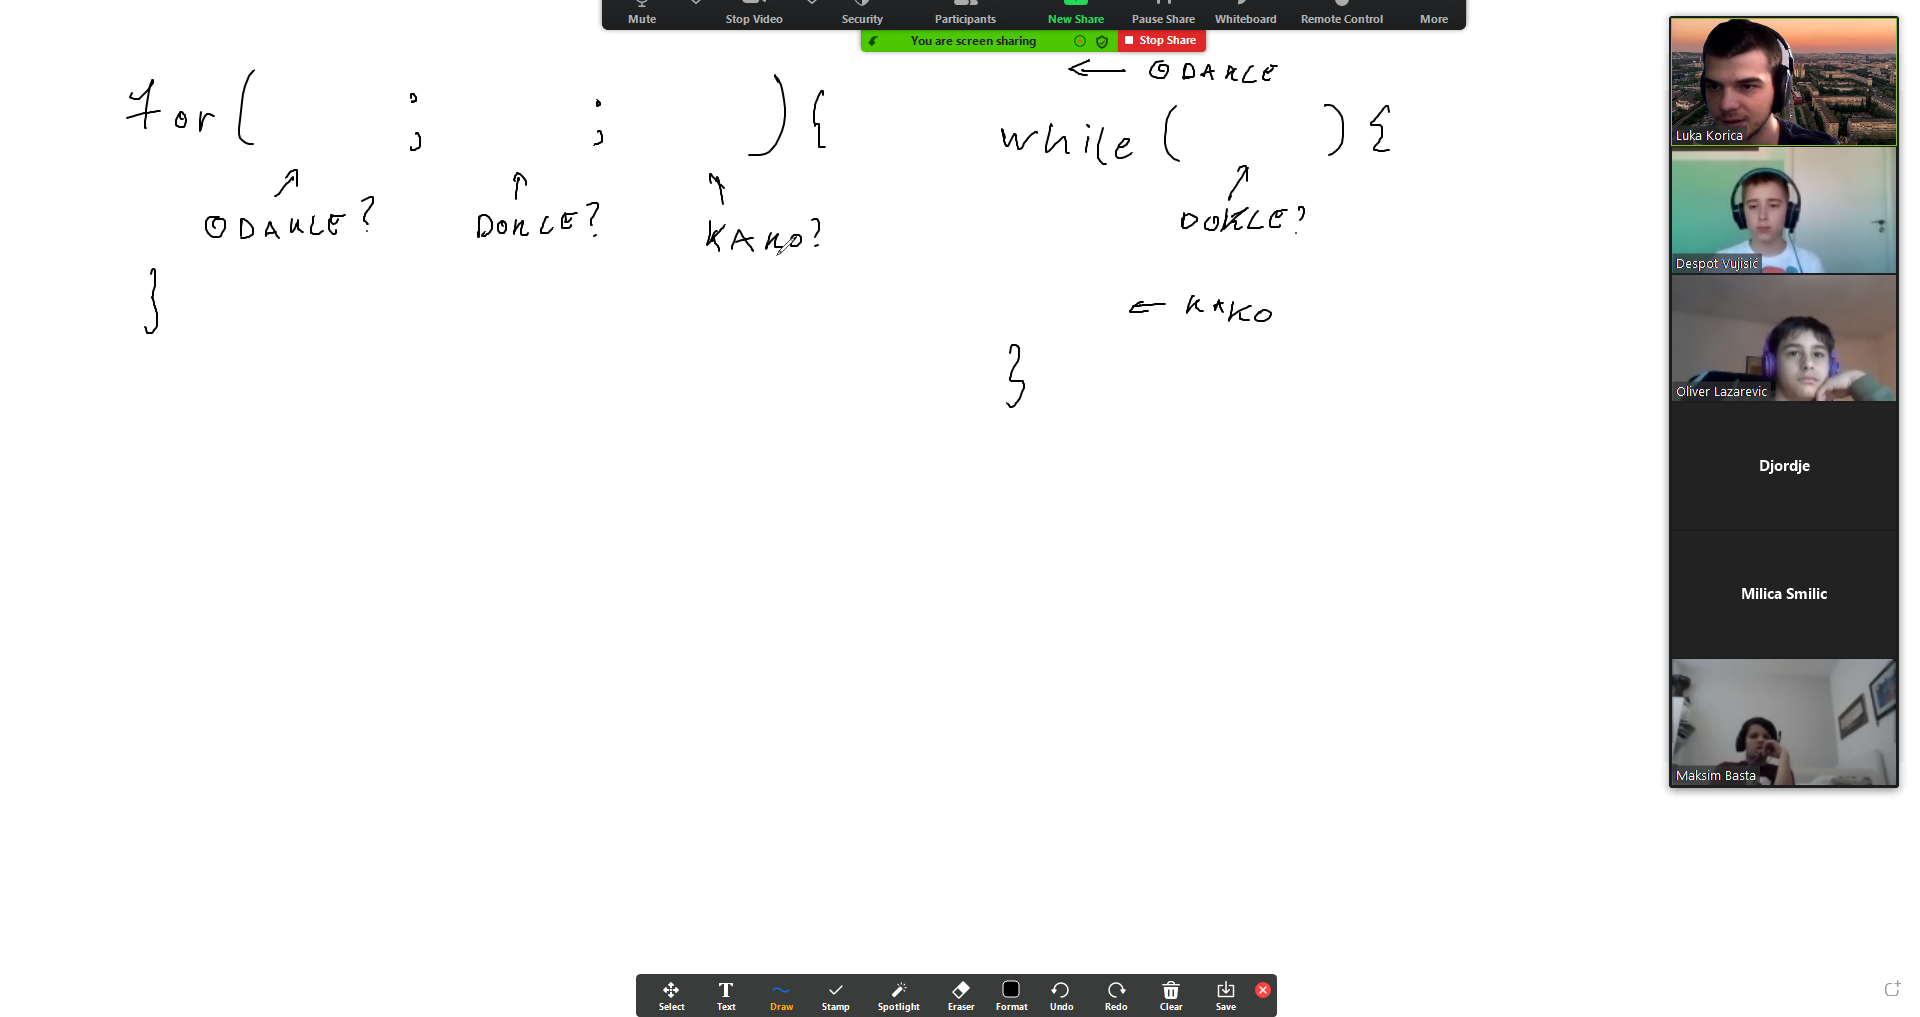 Mute Stop Video Security Participants New Share Pause Share Whiteboard Remote Control More
You are screen sharing Stop Share
← ODAKLE
for( ; ; ){
while( ){
ODAKLE? DOKLE? KAKO?
DOKLE?
}
← KAKO
}
Luka Korica
Despot Vujisić
Oliver Lazarevic
Djordje
Milica Smilic
Maksim Basta
Select Text Draw Stamp Spotlight Eraser Format Undo Redo Clear Save